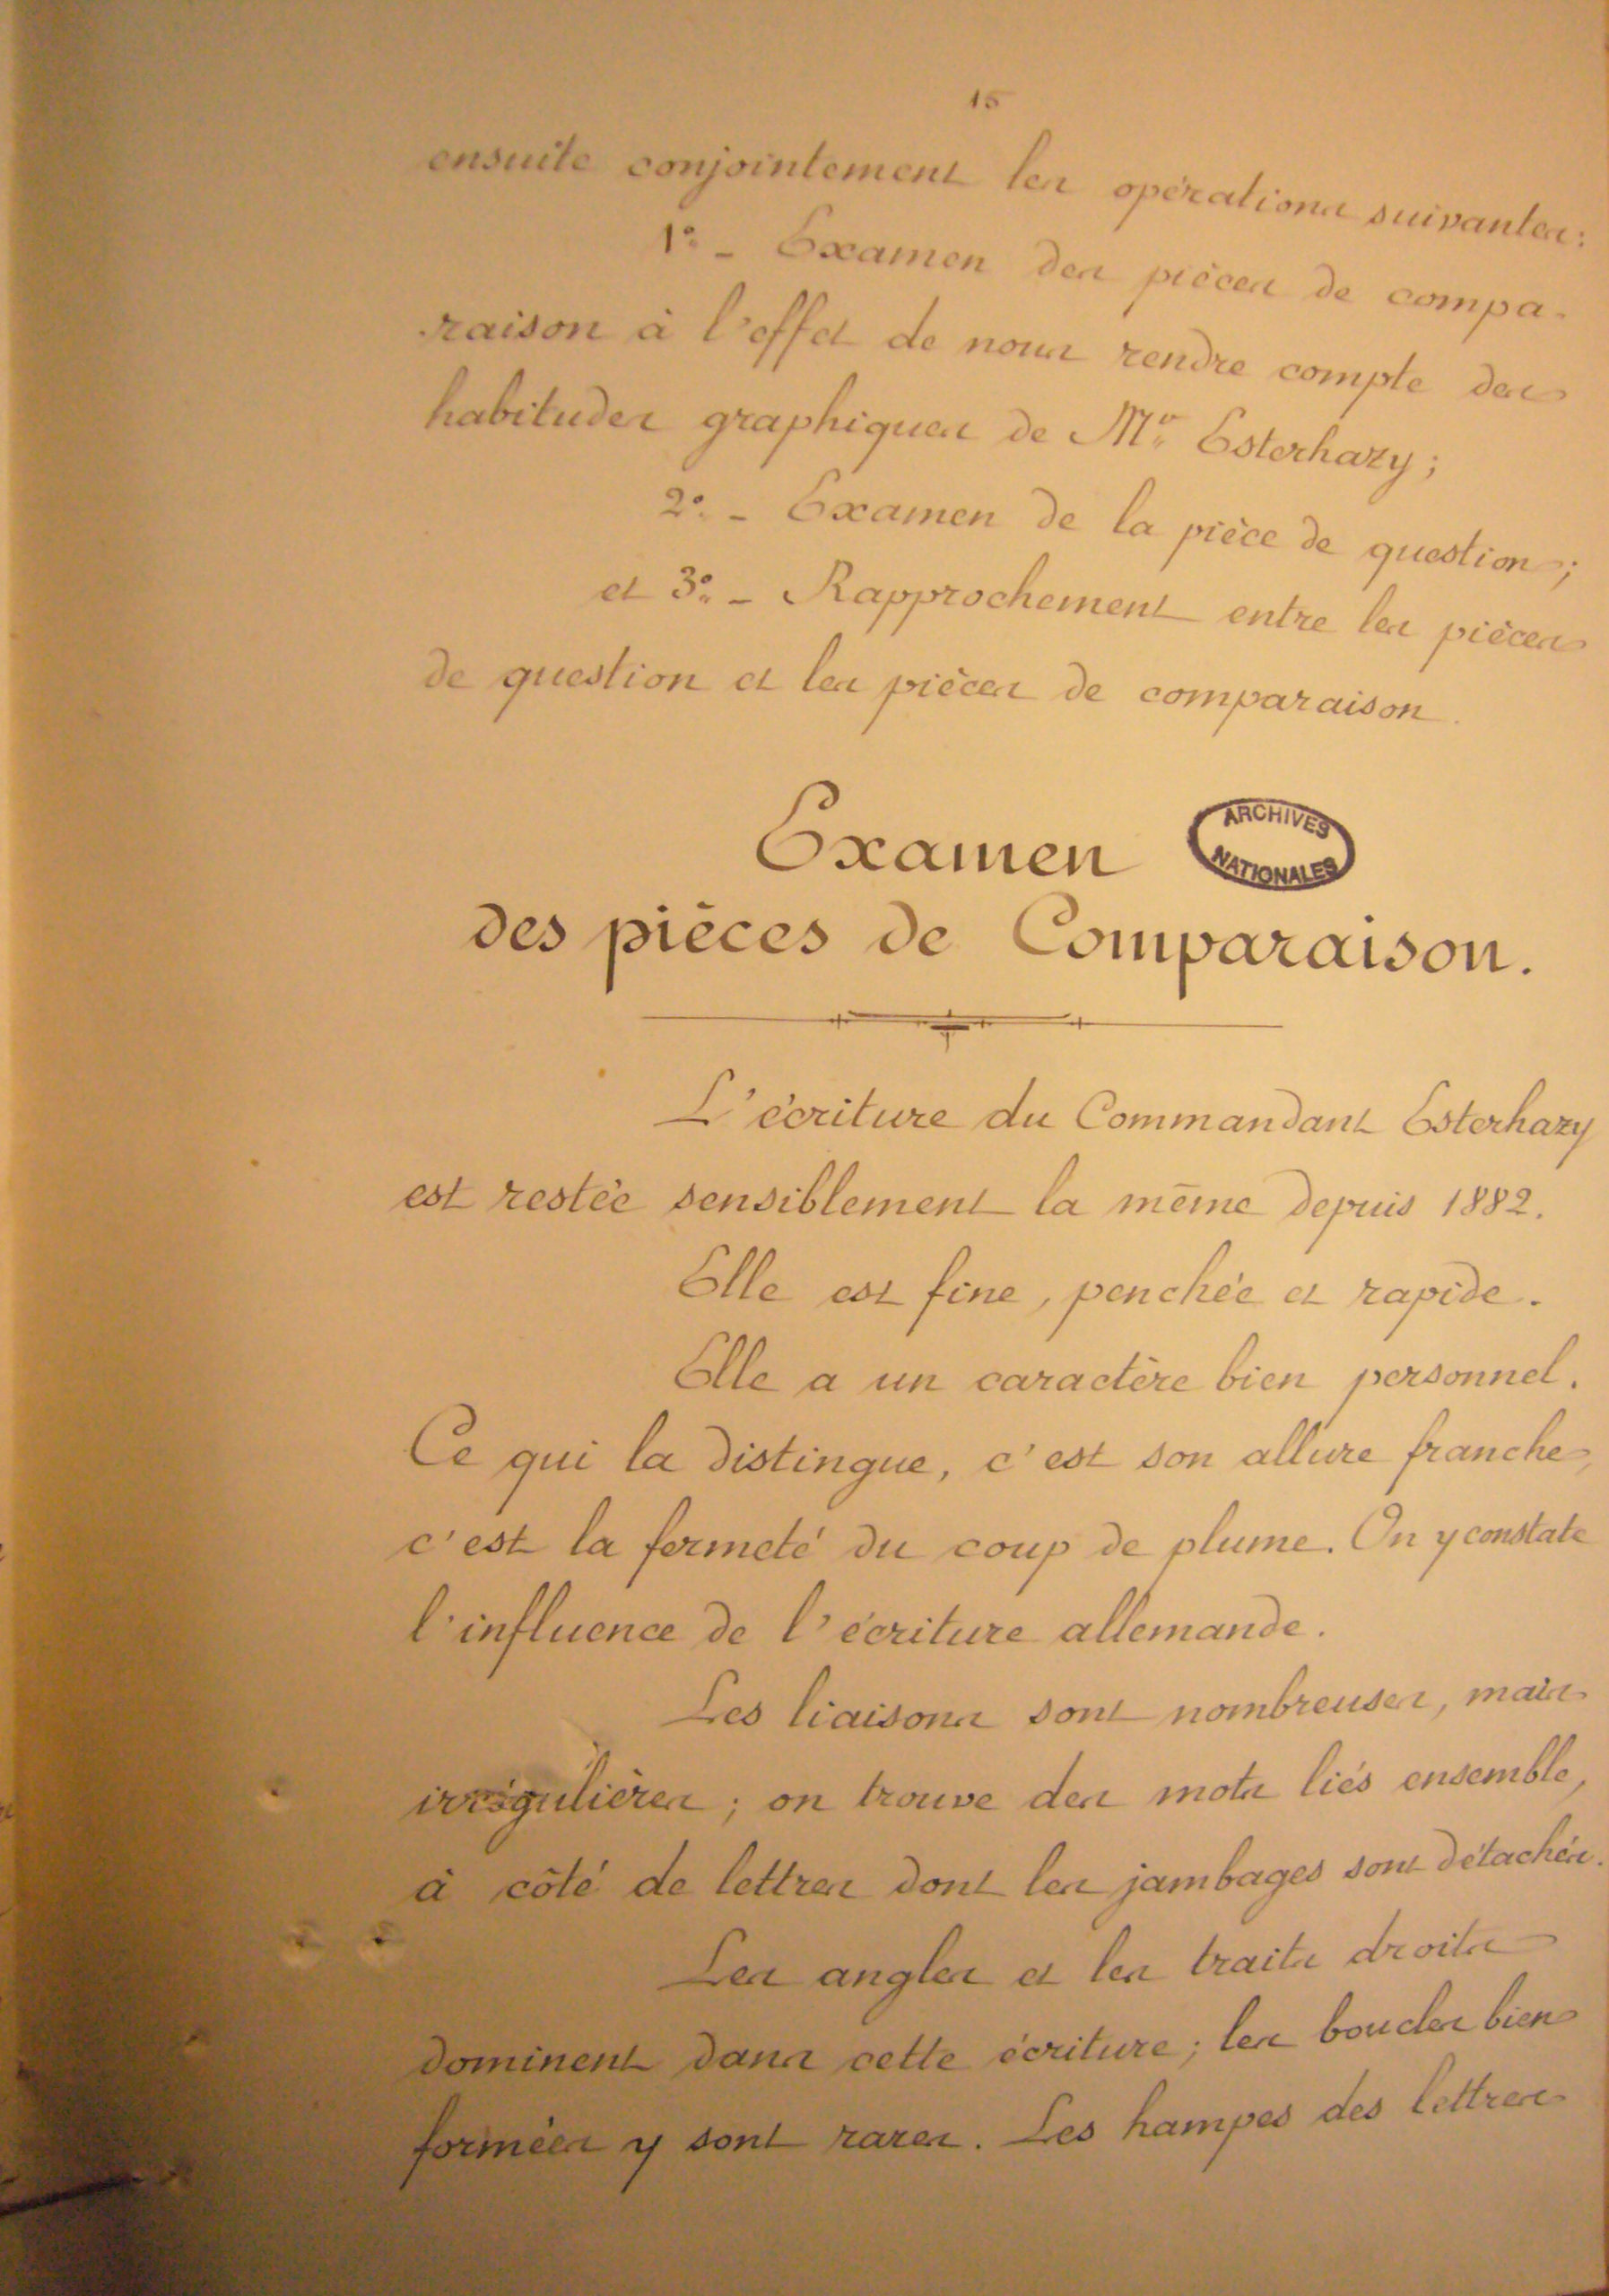 15
ensuite conjointement les opérations suivantes:
1° - Examen des pièces de compa-
raison à l'effet de nous rendre compte des
habitudes graphiques de Mr Esterhazy;
2° - Examen de la pièce de question;
et 3° - Rapprochement entre les pièces
de question et les pièces de comparaison.
Examen
ARCHIVES
NATIONALES
des pièces de Comparaison.
L'écriture du Commandant Esterhazy
est restée sensiblement la même depuis 1882.
Elle est fine, penchée et rapide.
Elle a un caractère bien personnel.
Ce qui la distingue, c'est son allure franche,
c'est la fermeté du coup de plume. On y constate
l'influence de l'écriture allemande.
Les liaisons sont nombreuses, mais
irrégulières; on trouve des mots liés ensemble,
à côté de lettres dont les jambages sont détachés.
Les angles et les traits droits
dominent dans cette écriture; les boucles bien
formées y sont rares. Les hampes des lettres